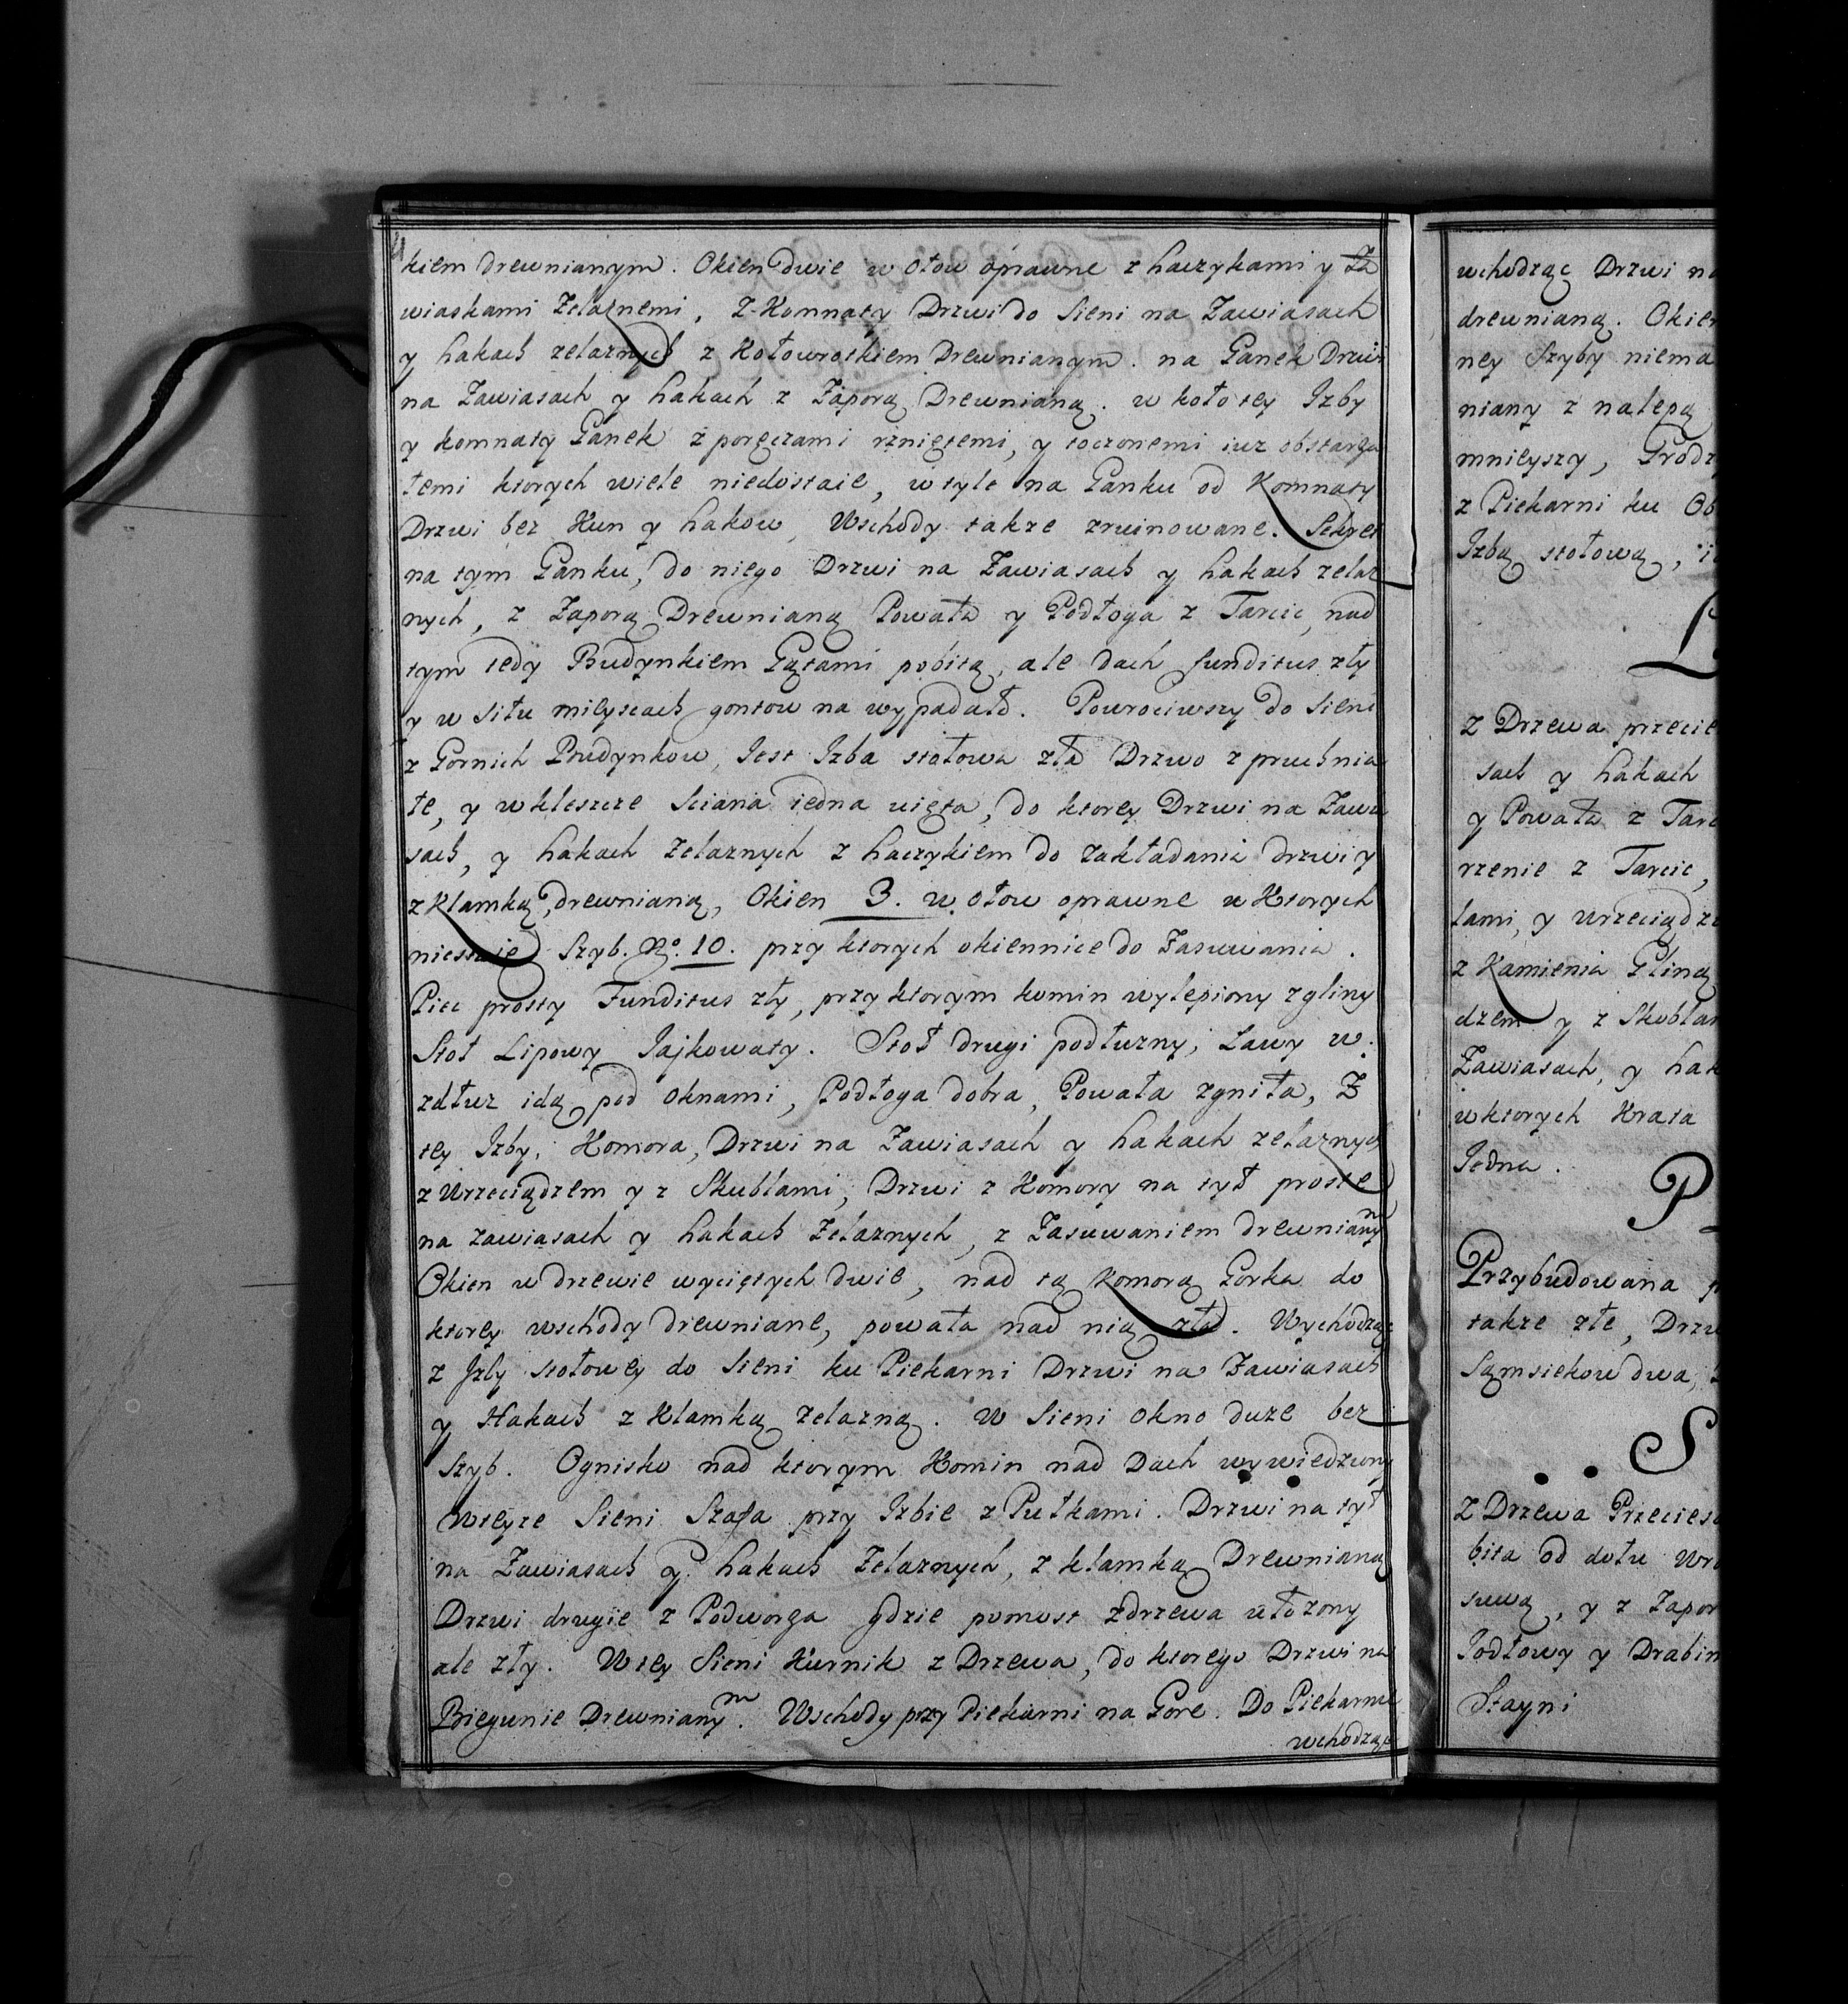 kiem drewnianym. Okien dwie w otow oprawne z haczykami y Za
wiaskami Zelaznemi, Z Komnaty Drzwi do Sieni na Zawiasach
y hakach zelaznych z Kołowrotkiem Drewnianym. na Ganek Drzwi
na Zawiasach y hakach z Zaporą Drewnianą. w koło tey Izby
y komnaty Ganek z poręczami rzniętemi, y toczonemi iuz obstarza
łemi ktorych wiele niedostaie, w tyle na Ganku od Komnaty
Drzwi bez Kun y hakow, Wschody takze zruinowane. Sekret
na tym Ganku, do niego Drzwi na Zawiasach y hakach zelaz
nych, z Zaporą Drewnianą Powała y Podłoga z Tarcic, nad
tym tedy Budynkiem Gątami pobitą, ale dach funditus zły
y w situ mieyscach gontow na wypadało. Powrociwszy do Sieni
z Gornich Budynkow, Jest Izba stołowa zła Drzwo zpruchnia
łe, y w kleszcze Sciana iedna uięta, do ktorey Drzwi na Zawia
sach, y hakach Zelaznych z haczykiem do zakładania drzwi y
z Klamką drewnianą, Okien 3. w otow oprawne w Ktorych
niestaie Szyb. No. 10. przy ktorych okiennice do Zasuwania.
Piec prosty Funditus zły, przy ktorym komin wylepiony z gliny
Stoł Lipowy Jajkowaty. Stoł drugi podłuzny, Ławy w.
zdłuz idą pod oknami, Podłoga dobra, Powała zgniła, Z
tey Izby, Komora, Drzwi na Zawiasach y hakach zelaznych
z Wrzeciądzem y z Skublami, Drzwi z Komory na tył proste
na zawiasach y hakach Zelaznych, z Zasuwaniem drewnianym
Okien w drzewie wyciętych dwie, nad tą Komorą Gorka do
ktorey wschody drewniane, powała nad nią zła. Wychodząc
z Jzby stołowey do Sieni ku Piekarni Drzwi na Zawiasach
y Hakach z Klamką zelazną. W Sieni okno duze bez
Szyb. Ognisko nad ktorym Komin nad Dach wywiedziony
Wteyze Sieni Szafa przy Izbie z Pułkami. Drzwi na tył
na Zawiasach y hakach Zelaznych, z klamką Drewnianą
Drzwi drugie z Podworza gdzie pomost zdrzewa ułozony
ale zły. Wtey Sieni Kurnik z Drzewa, do ktorego Drzwi na
Biegunie Drewnianym. Wschody przy Piekarni na Gore. Do Piekarni
wchodząc
wchodząc Drzwi na
drewnianą. Okien
ney Szyby niema
niany z nalepą
mnieyszy, Grodz
z Piekarni ku Ob
Izbą stołową,
Z Drzewa przecie
sach y hakach
y Powała z Tarc
rzenie z Tarcic,
lami, y wrzeciądz
z Kamienia Gliną
dzem y z Skoblam
Zawiasach, y hak
wktorych Krata
Jedna.
P
Przybudowana
takze złe, Drzw
Sąmsiekow dwa,
S
Z Drzewa Przecies
bita od dołu Wr
suwą, y z Zapor
Jodłowy y Drabin
Stayni